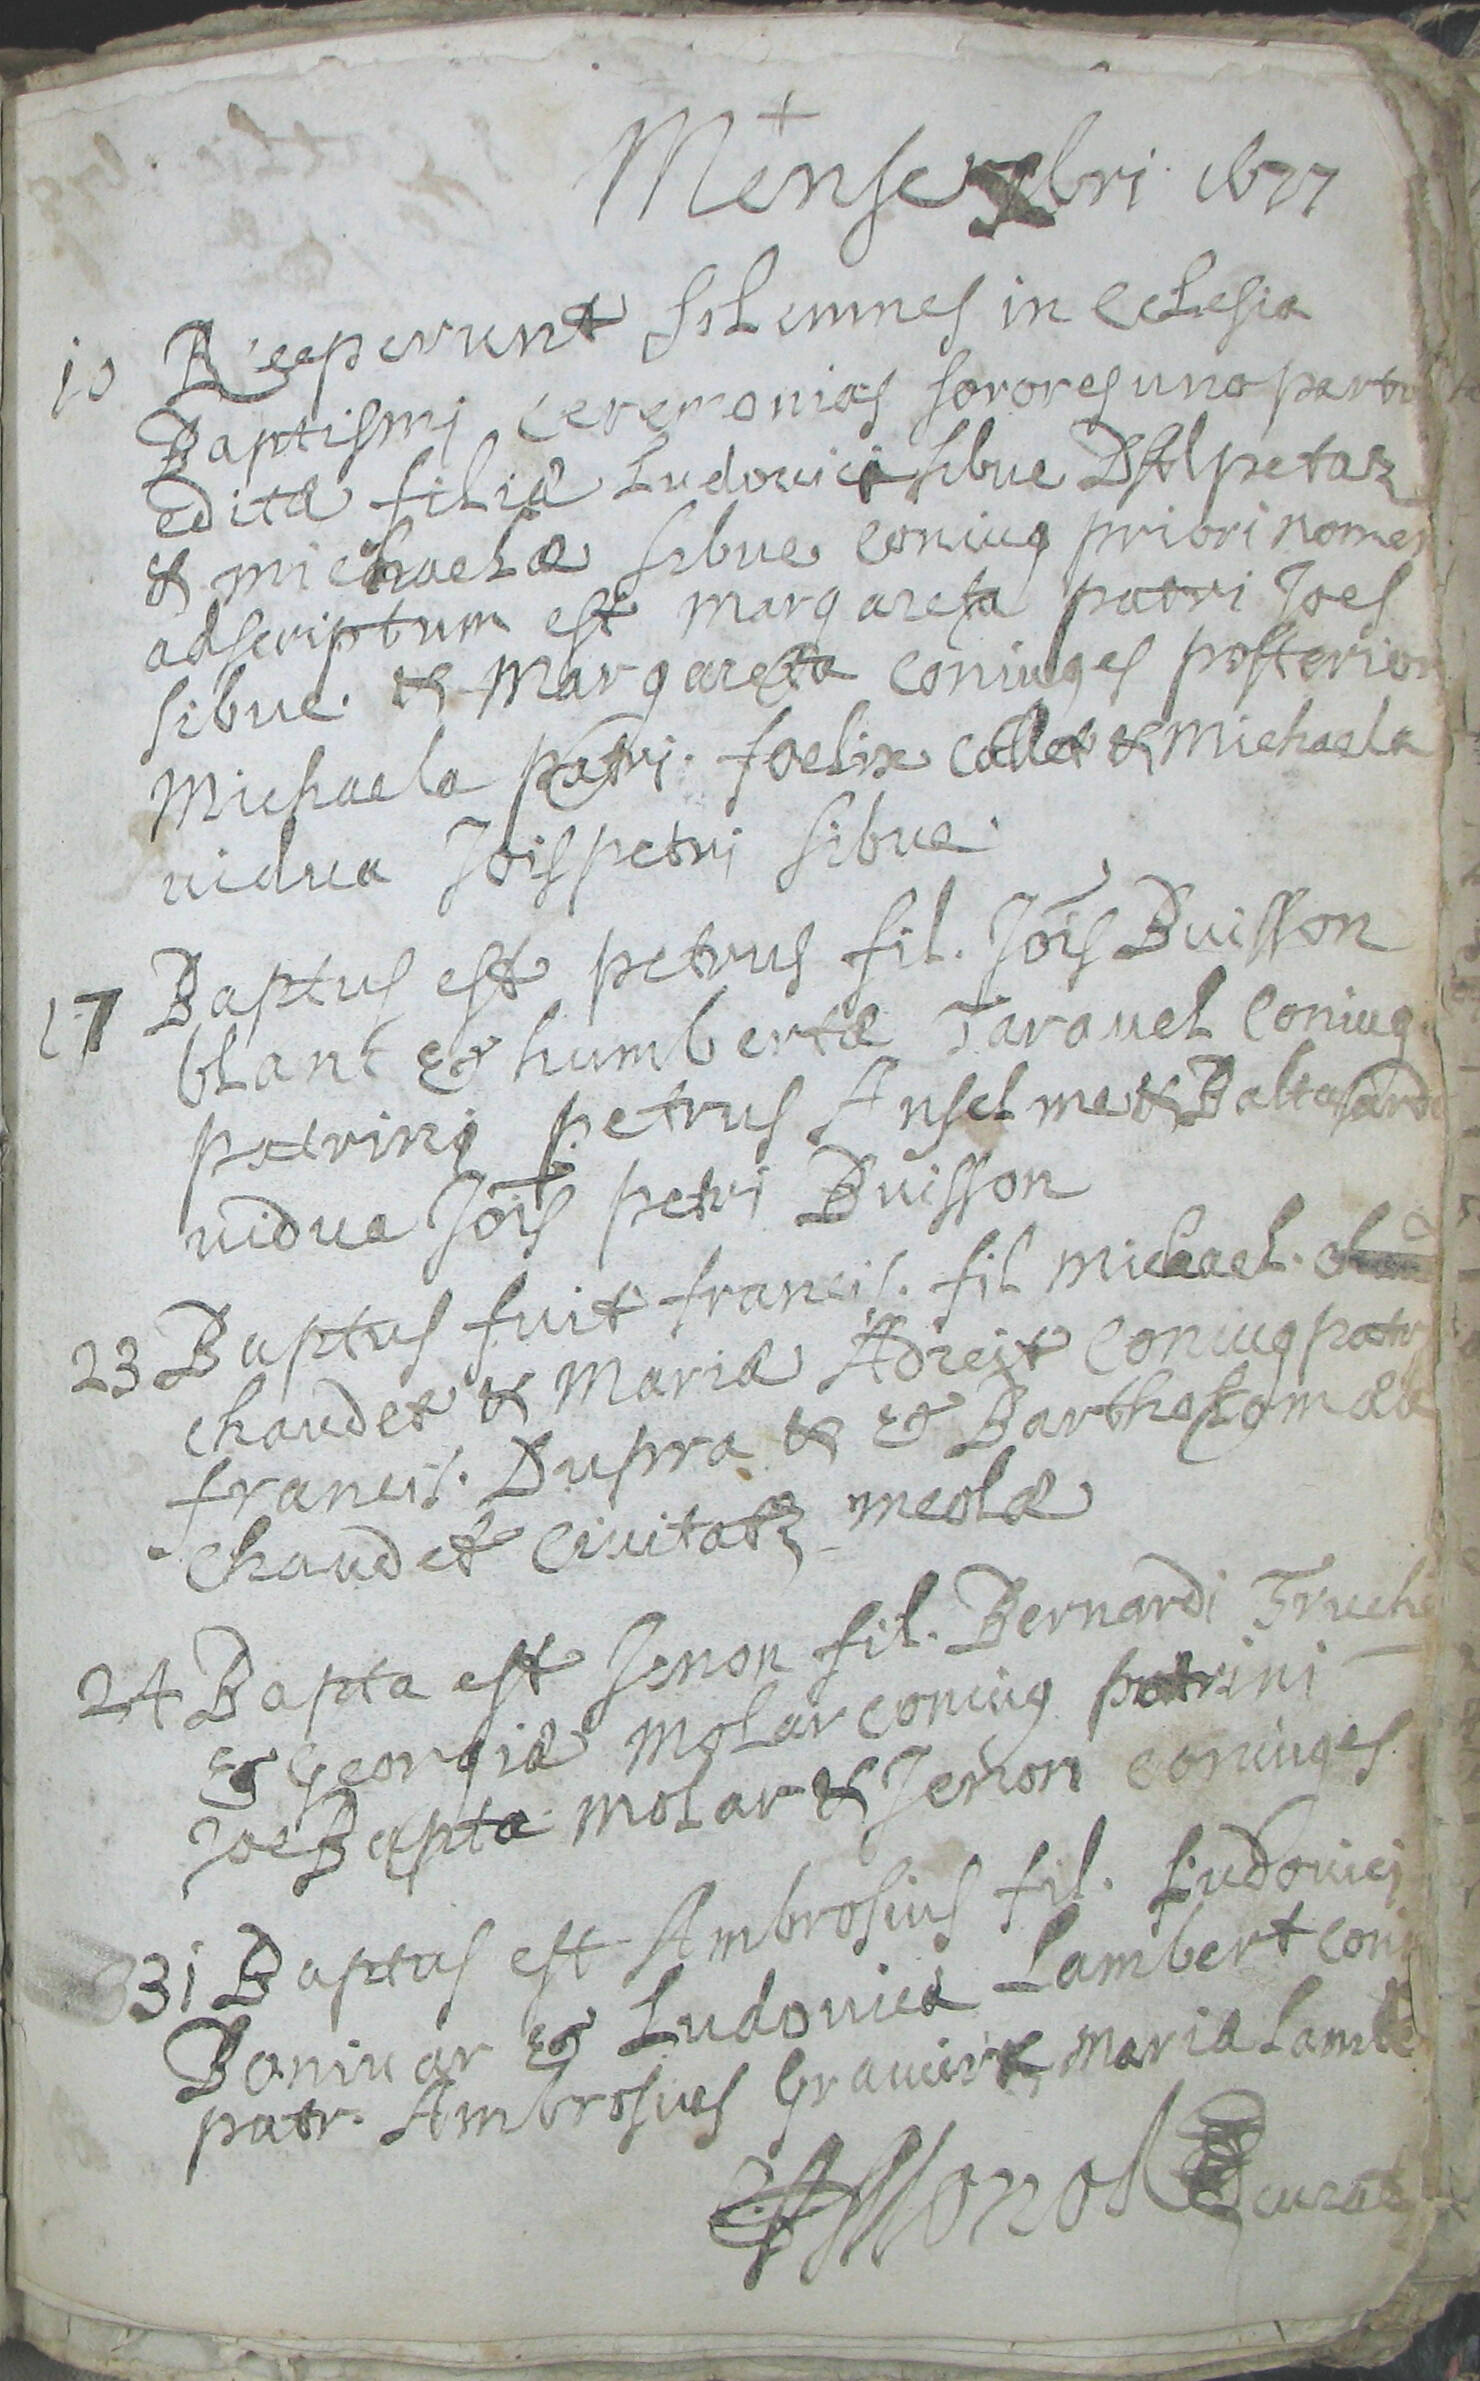 +
Mense Xbri 1677
10 Receperunt solemnes in Eclesia
Baptismi ceremonias sorores uno partu
editæ filiæ Ludovici sibue petaz
& michaelæ sibue coniug priori nomen
adscriptum est margareta patri Joes
sibue & Margareta coniuges posterior
Michaela patri. foelix collet & Michaela
vidua Jois petri sibue.
17 Baptus est petrus fil. Jois Buisson
blanc & humbertæ Taravel coniug.
patrini petrus Anselme & Baltasarde
vidua Jois petri Buisson
23 Baptus fuit francis. fil michael.
chaudet & Mariæ Adreyt coniug patr
francis. Dupra & & Bartholomæa
chaudet civitatz meolæ
24 Bapta est Jenon fil. Bernardi Truche
& Georgiæ molar coniug patrini
Joe Bapta molar & Jenon coniuges.
31 Baptus est Ambrosius fil. Ludovici
Bonivar & Ludovica Lambert coni
patr. Ambrosius Gravier & maria Lambe
curatz